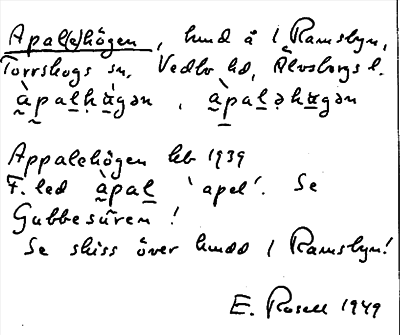 Apal(e)högen, hmd å 1 Ramsbyn,
Torrskogs sn, Vedbo hd, Älvsborgs l.
àpalhägən, àpaləhägən
Appalehögen hb 1939
F. led àpal 'apel'. Se
Gubbesűren!
Se skiss över hmdd 1 Ramsbyn!
E. Rosell 1949